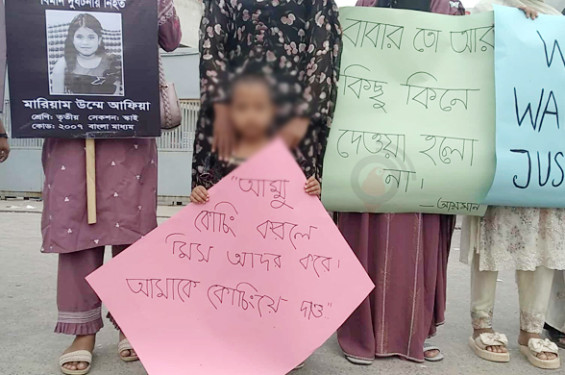 বিমান দুর্ঘটনায় নিহত
মারিয়াম উম্মে আফিয়া
শ্রেণি: তৃতীয় সেকশন: স্কাই
কোড: ২০০৭ বাংলা মাধ্যম
"আম্মু
কোচিং করলে
মিস আদর করে।
আমাকে কোচিংয়ে দাও"
বাবার তো আর
কিছু কিনে
দেওয়া হলো
না।
W
WA
JUS